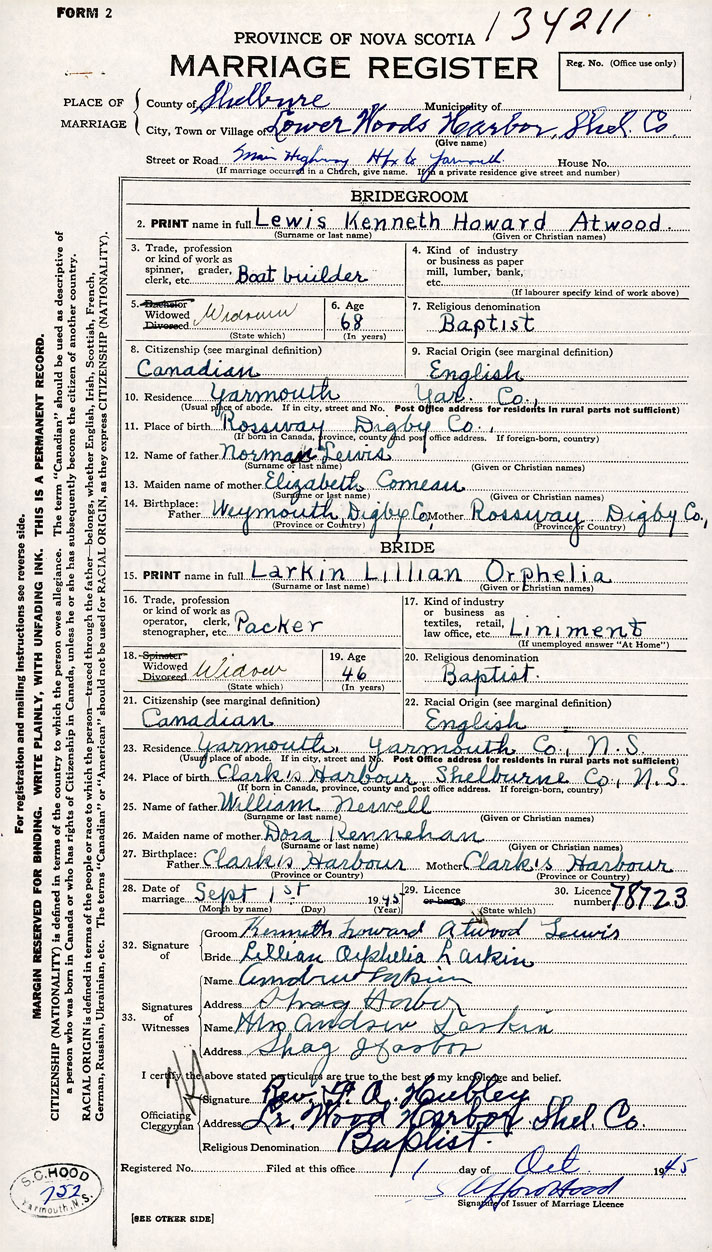 FORM 2
134211
PROVINCE OF NOVA SCOTIA
MARRIAGE REGISTER
Reg. No. (Office use only)
PLACE OF MARRIAGE
County of Shelburne Municipality of
City, Town or Village of Lower Woods Harbor, Shel. Co.
(Give name)
Street or Road Main Highway Hfx to Yarmouth House No.
(If marriage occurred in a Church, give name. If in a private residence give street and number)
BRIDEGROOM
2. PRINT name in full Lewis Kenneth Howard Atwood.
(Surname or last name) (Given or Christian names)
3. Trade, profession or kind of work as spinner, grader, clerk, etc. Boat builder
4. Kind of industry or business as paper mill, lumber, bank, etc.
(If labourer specify kind of work above)
5. Bachelor Widowed Divorced Widower
(State which)
6. Age 68
(In years)
7. Religious denomination
Baptist
8. Citizenship (see marginal definition)
Canadian
9. Racial Origin (see marginal definition)
English
10. Residence Yarmouth Yar. Co.,
(Usual place of abode. If in city, street and No. Post Office address for residents in rural parts not sufficient)
11. Place of birth Rossway Digby Co.,
(If born in Canada, province, county and post office address. If foreign-born, country)
12. Name of father Norman Lewis
(Surname or last name) (Given or Christian names)
13. Maiden name of mother Elizabeth Comeau
(Surname or last name) (Given or Christian names)
14. Birthplace: Father Weymouth, Digby Co, Mother Rossway Digby Co.,
(Province or Country) (Province or Country)
BRIDE
15. PRINT name in full Larkin Lillian Orphelia
(Surname or last name) (Given or Christian names)
16. Trade, profession or kind of work as operator, clerk, stenographer, etc. Packer
17. Kind of industry or business as textiles, retail, law office, etc. Liniment
(If unemployed answer "At Home")
18. Spinster Widowed Divorced Widow
(State which)
19. Age 46
(In years)
20. Religious denomination
Baptist.
21. Citizenship (see marginal definition)
Canadian
22. Racial Origin (see marginal definition)
English
23. Residence Yarmouth, Yarmouth Co., N.S.
(Usual place of abode. If in city, street and No. Post Office address for residents in rural parts not sufficient)
24. Place of birth Clark's Harbour, Shelburne Co., N.S.
(If born in Canada, province, county and post office address. If foreign-born, country)
25. Name of father William Newell
(Surname or last name) (Given or Christian names)
26. Maiden name of mother Dora Kennehan
(Surname or last name) (Given or Christian names)
27. Birthplace: Father Clark's Harbour Mother Clark's Harbour
(Province or Country) (Province or Country)
28. Date of marriage Sept 1st 1945
(Month by name) (Day) (Year)
29. Licence or banns
(State which)
30. Licence number 78723
32. Signature of
Groom Kenneth Howard Atwood Lewis
Bride Lillian Orphelia Larkin
33. Signatures of Witnesses
Name Andrew Larkin
Address Shag Harbor
Name Mrs Andrew Larkin
Address Shag Harbor
I certify the above stated particulars are true to the best of my knowledge and belief.
Officiating Clergyman
Signature Rev. F. A. Hubley
Address Lr. Wood Harbor, Shel. Co.
Religious Denomination Baptist.
Registered No. Filed at this office 1 day of Oct 1945
Hood
Signature of Issuer of Marriage Licence
[SEE OTHER SIDE]
S.C. HOOD
752
Yarmouth, N.S.
For registration and mailing instructions see reverse side.
MARGIN RESERVED FOR BINDING. WRITE PLAINLY, WITH UNFADING INK. THIS IS A PERMANENT RECORD.
CITIZENSHIP (NATIONALITY) is defined in terms of the country to which the person owes allegiance. The term "Canadian" should be used as descriptive of
a person who was born in Canada or who has rights of Citizenship in Canada, unless he or she has subsequently become the citizen of another country.
RACIAL ORIGIN is defined in terms of the people or race to which the person—traced through the father—belongs, whether English, Irish, Scottish, French,
German, Russian, Ukrainian, etc. The terms "Canadian" or "American" should not be used for RACIAL ORIGIN, as they express CITIZENSHIP (NATIONALITY).